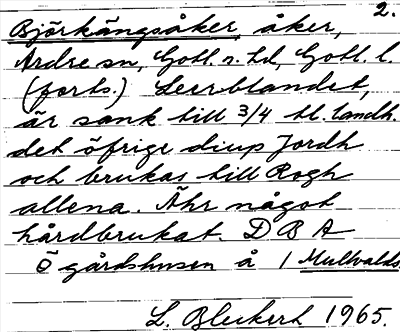 2.
Björkängsåker, åker,
Ardre sn, Gotl. s. hd, Gotl. l.
(forts.) Leerblandet,
är sank till 3/4 tl. landh.
det öfrige diup Jordh
och brukas till Rogh
allena. Ähr något
hårdbrukat. D B A
Ö gårdshusen å 1 Mullvalds
L. Bleckert 1965.